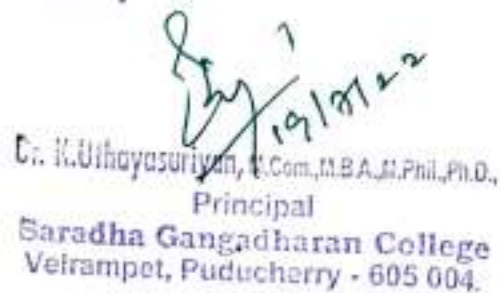 19/3/22
Dr. K.Uthayasuriyan, M.Com.,M.B.A.,M.Phil.,Ph.D.,
Principal
Saradha Gangadharan College
Velrampet, Puducherry - 605 004.